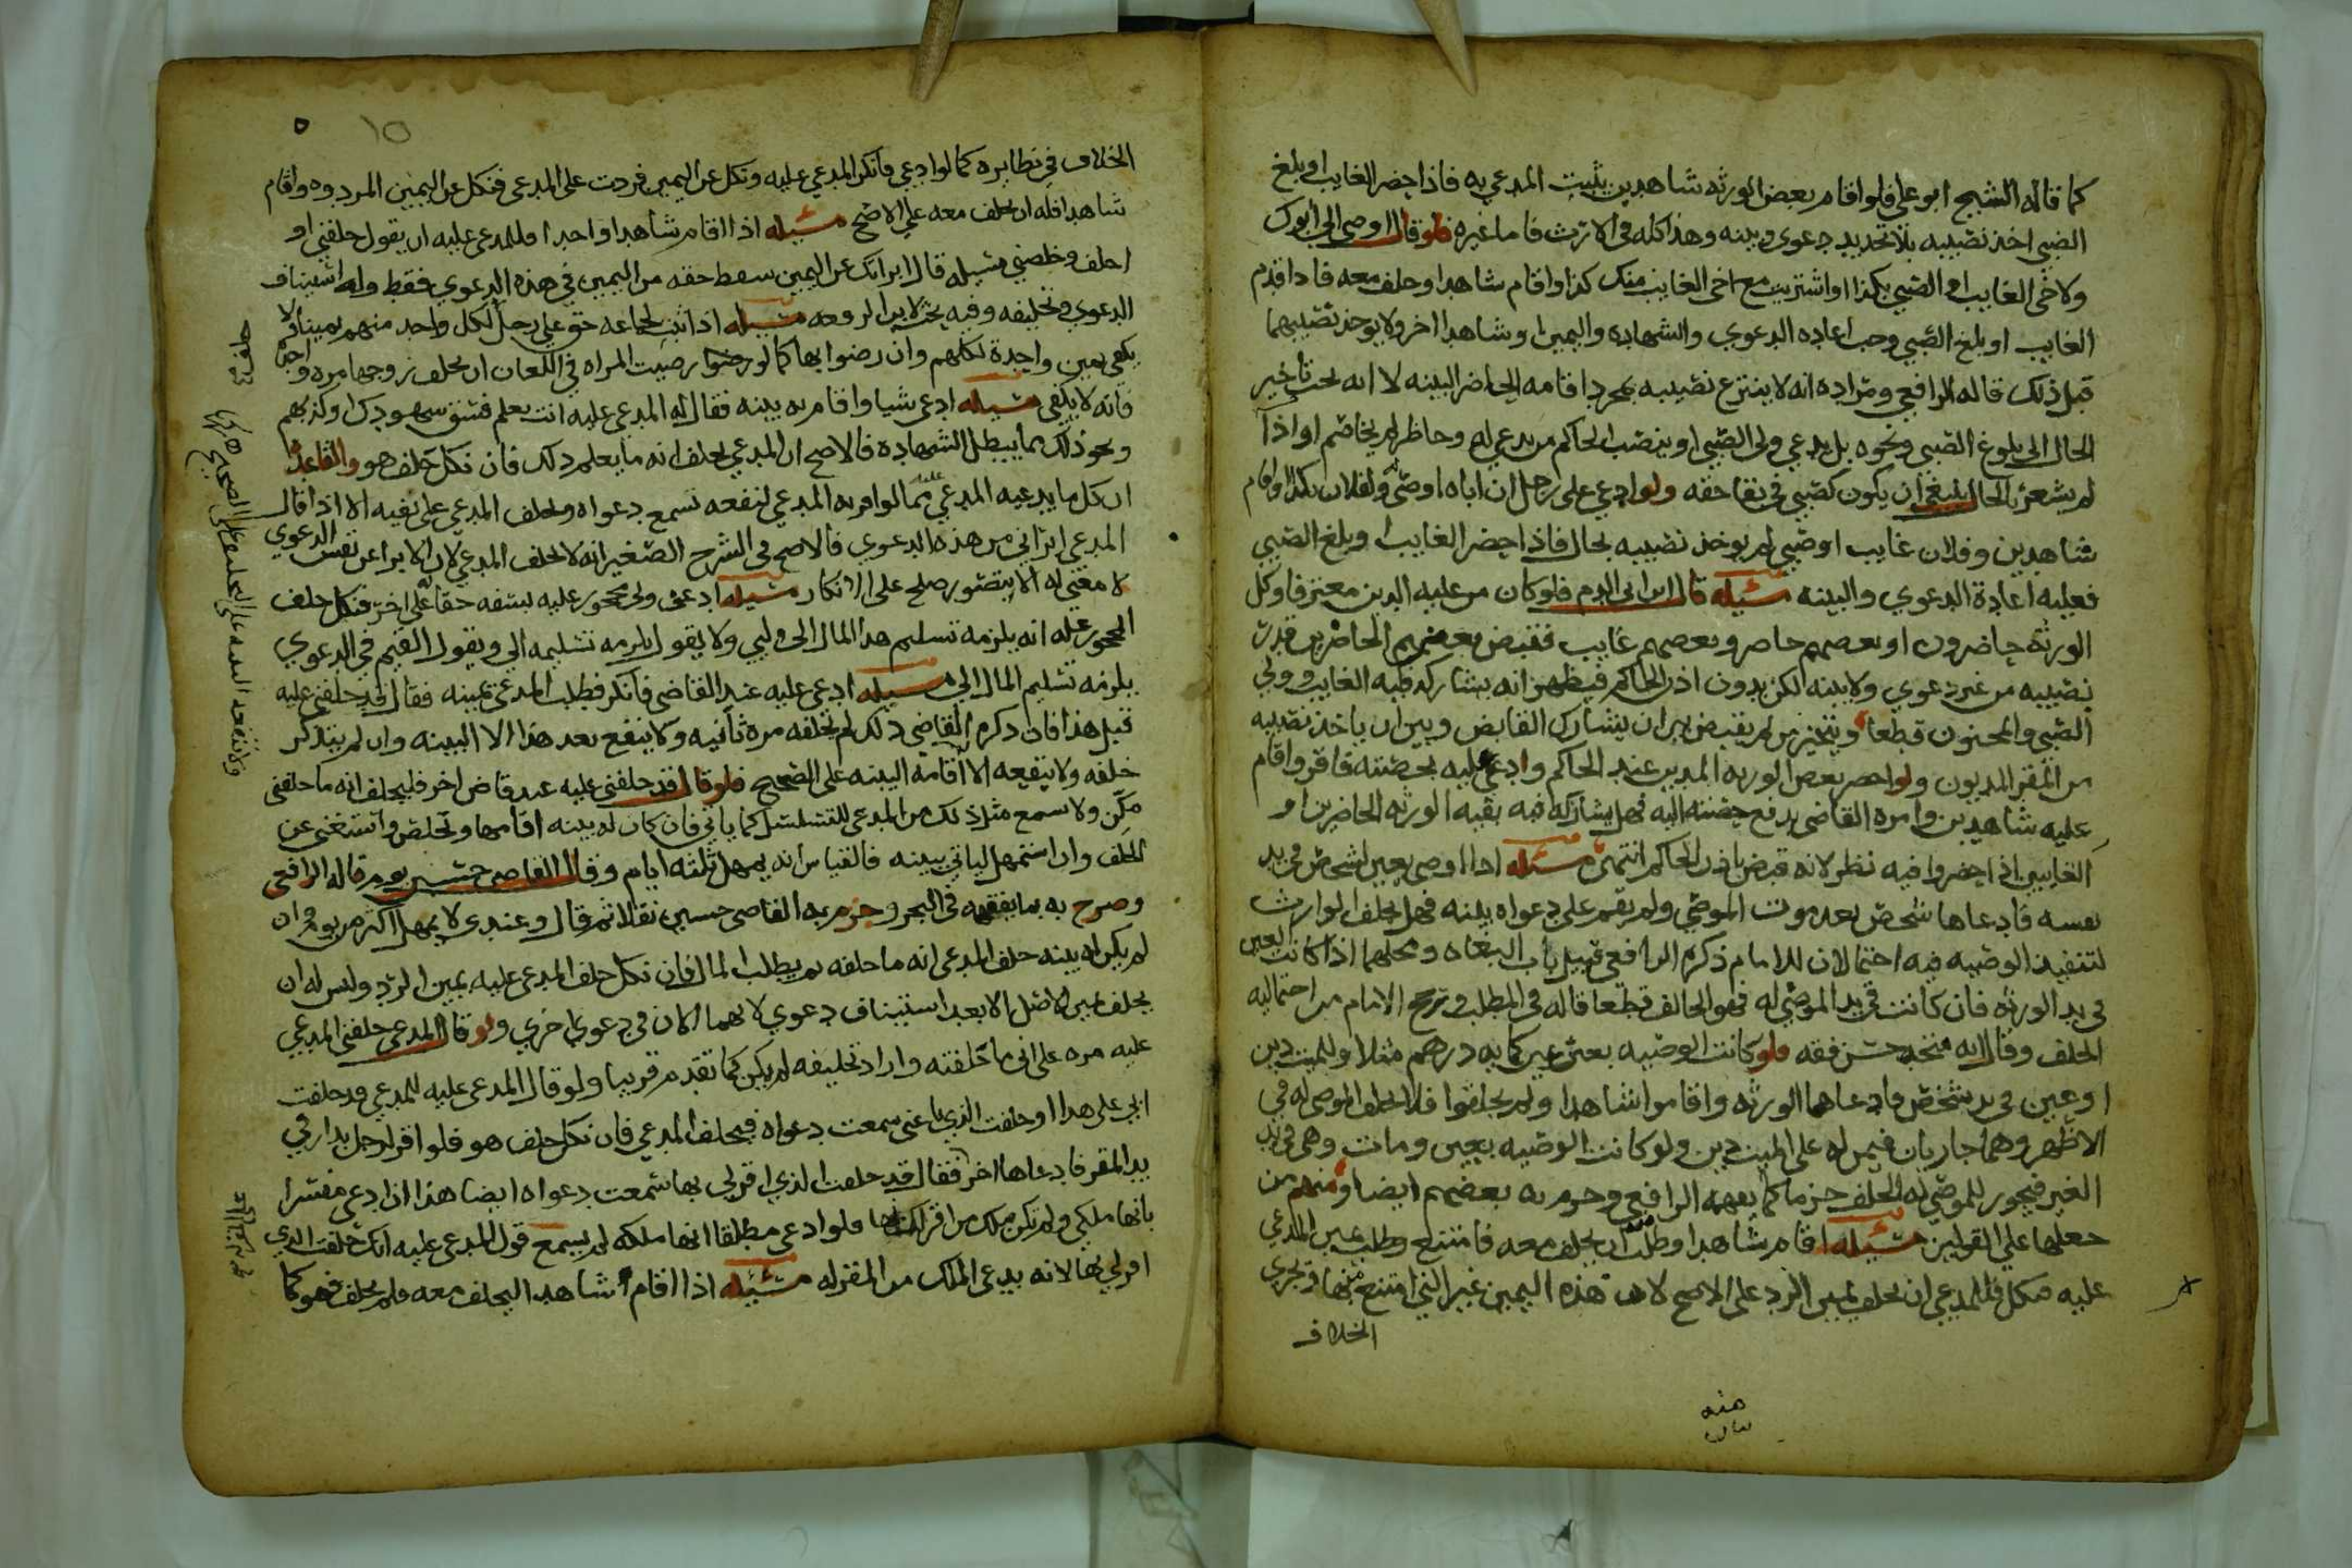 كما قاله الشيخ ابو علي فلو اقام بعض الورثه شاهدين يثبت المدعي به فاذا حضر الغايب او بلغ
الصبي اخذ نصيبه بلا تجديد دعوى وبينه وهذا كله في الارث فاما غيره فلو قال اوصى الى ابوك
ولاخي الغايب او الصبي بكذا او اشتريت مع اخي الغايب منك كذا واقام شاهدا وحلف معه فاذا قدم
الغايب او بلغ الصبي وجب اعاده الدعوي والشهاده واليمين او شاهدا اخر ولا يوخذ نصيبهما
قبل ذلك قاله الرافعي ومراده انه لا ينتزع نصيبه بمجرد اقامه الحاضر البينه لا انه يجب تاخير
الحال الى بلوغ الصبي ونحوه بل يدعي ولي الصبي او ينصب الحاكم من يدعي له وحاضر لم يخاصم او اذا
لم يشعر بالحال ينبغي ان يكون كصبي في بقا حقه ولو ادعي على رجل ان اباه اوصى له ولفلان بكذا واقام
شاهدين وفلان غايب او صبي لم يوخذ نصيبه بحال فاذا حضر الغايب او بلغ الصبي
فعليه اعادة الدعوي والبينه مسئله قال ابن ابي الدم فلو كان من عليه الدين معترفا وكل
الورثة حاضرون او بعضهم حاضر وبعضهم غايب فقبض بعضهم الحاضرين قدر
نصيبه من غير دعوي ولا بينه لكن بدون اذن الحاكم فيظهر انه يشاركه فيه الغايب وولي
الصبي والمجنون قطعا ويتخير من لم يقبض بين ان يشارك القابض وبين ان ياخذ نصيبه
من المقر المديون ولو احضر بعض الورثه المدين عند الحاكم وادعي عليه بحصته فاقر واقام
عليه شاهدين وامره القاضي بدفع حصته اليه فهل يشاركه فيه بقيه الورثه الحاضرين او
الغايبين اذا حضروا فيه نظر لانه قبض باذن الحاكم انتهى مسئله اذا اوصى بعين لشخص في يد
نفسه فادعاها شخص بعد موت الموصي ولم يقم على دعواه بينه فهل يحلف الوارث
لتنفيذ الوصيه فيه احتمالان للامام ذكره الرافعي قبيل باب البغاه ومحلهما اذا كانت العين
في يد الورثه فان كانت في يد الموصى له فهو الحالف قطعا قاله في المطلب ورجح الامام من احتماليه
الحلف وقال انه متجه حسن فقه فلو كانت الوصيه بغير عين كمايه درهم مثلا وللميت دين
او عين في يد شخص فادعاها الورثه واقاموا شاهدا ولم يحلفوا فلا يحلف الموصى له في
الاظهر وهما جاريان فيمن له على الميت دين ولو كانت الوصيه بعين ومات وهي في يد
الغير فيجوز للموصى له الحلف جزما كما يفهمه الرافعي وجزم به بعضهم ايضا ومنهم من
جعلها على القولين مسئله اقام شاهدا وطلب منه ان يحلف معه فامتنع وطلب يمين المدعي
عليه فنكل فللمدعي ان يحلف يمين الرد على الاصح لان هذه اليمين غير التي امتنع منها ويجري
الخلاف
منه
الخلاف في نظايره كما لو ادعي فانكر المدعي عليه ونكل عن اليمين فردت على المدعي فنكل عن اليمين المردوده واقام
شاهدا فله ان يحلف معه على الاصح مسئله اذا اقام شاهدا واحدا وللمدعى عليه ان يقول حلفني او
احلف وخلصني مسئله قال ابراتك عن اليمين سقط حقه من اليمين في هذه الدعوي فقط وله استيناف
الدعوي وتحليفه وفيه بحث لابن الرفعه مسئله اذا ثبت لجماعه حق على رجل لكل واحد منهم يمينا ولا
يكفي يمين واحدة لكلهم وان رضوا بها كما لو رضيت المراه في اللعان ان يحلف زوجها مره واحدة
فانه لا يكفي مسئله ادعي شيا واقام به بينه فقال له المدعي عليه انت تعلم فسق شهودك او كذبهم
ونحو ذلك مما يبطل الشهادة فالاصح ان المدعي يحلف انه ما يعلم ذلك فان نكل حلف هو والقاعدة
ان كل ما يدعيه المدعي عليه مما لو اقر به المدعي لنفعه تسمع دعواه وحلف المدعي على نفيه الا اذا قال
المدعي ابراني من هذه الدعوي فالاصح في الشرح الصغير انه لا يحلف المدعي لان الابرا عن نفس الدعوي
لا معني له الا بتصور صلح على الانكار مسئله ادعي ولي محجور عليه لسفه حقا له على اخر فنكل حلف
المحجور عليه انه يلزمه تسليم هذا المال الى وليي ولا يقول يلزمه تسليمه الي ويقول القيم في الدعوي
يلزمه تسليم المال الي مسئله ادعي عليه عند القاضي فانكر فطلب المدعي يمينه فقال قد حلفني عليه
قبل هذا فان ذكره القاضي ذلك لم يحلفه مرة ثانيه ولا ينفع بعد هذا الا البينه وان لم يتذكر
حلفه ولا ينفعه الا اقامة البينه على الصحيح فلو قال قد حلفني عليه عند قاض اخر فليحلف انه ما حلفني
مكن ولا يسمع مثل ذلك من المدعي للتسلسل كما ياتي فان كان له بينه اقامها وتخلص واستغني عن
الحلف وان استمهل لياتي ببينه فالقياس انه يمهل ثلثه ايام وقال القاضي حسين يوم قاله الرافعي
وصرح به بما يفقهه في البحر وجزم به القاضي حسين نقلا ثم قال وعندي لا يمهل اكثر من يوم وان
لم يكن له بينه حلف المدعي انه ما حلفه ثم يطلب المال فان نكل حلف المدعي عليه يمين الرد وليس له ان
يحلف يمين الاصل الا بعد استيناف دعوي لانهما الان في دعوي اخري ولو قال المدعي حلفني المدعي
عليه مره على اني ما حلفته واراد تحليفه لم يكن كما تقدم قريبا ولو قال المدعى عليه للمدعي قد حلفت
ابي على هذا او حلفت الذي باعني سمعت دعواه فيحلف المدعي فان نكل حلف هو فلو اقر لرجل بدار في
يد المقر فادعاها اخر فقال قد حلفت الذي اقر لي بها سمعت دعواه ايضا هذا اذا ادعي مفسرا
بانها ملكي ولم تكن ملك من اقر لك بها فلو ادعي مطلقا انها ملكه لم يسمع قول المدعى عليه انك حلفت الذي
اقر لي بها لانه يدعي الملك من المقر له مسئله اذا اقام شاهدا ليحلف معه فلم يحلف فهو كما